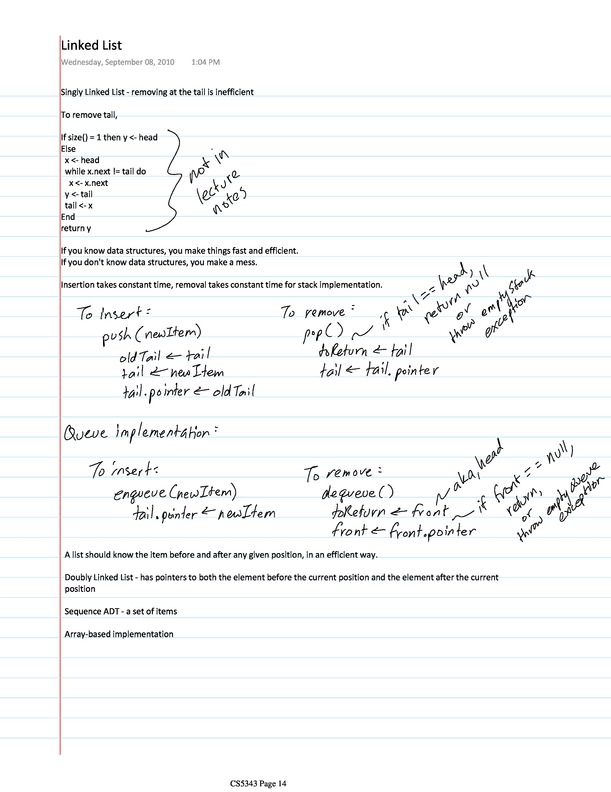 Linked List
Wednesday, September 08, 2010 1:04 PM
Singly Linked List - removing at the tail is inefficient
To remove tail,
If size() = 1 then y <- head
Else
x <- head
while x.next != tail do
x <- x.next
y <- tail
tail <- x
End
return y
not in
lecture
notes
If you know data structures, you make things fast and efficient.
If you don't know data structures, you make a mess.
Insertion takes constant time, removal takes constant time for stack implementation.
To Insert:
push(newItem)
oldTail ← tail
tail ← newItem
tail.pointer ← oldTail
To remove:
pop() ~ if tail == head,
return null
or
throw emptyStack
exception
toReturn ← tail
tail ← tail.pointer
Queue implementation:
To insert:
enqueue(newItem)
tail.pointer ← newItem
To remove:
dequeue() ~ aka, head
toReturn ← front ~ if front == null,
return,
or
throw emptyQueue
exception
front ← front.pointer
A list should know the item before and after any given position, in an efficient way.
Doubly Linked List - has pointers to both the element before the current position and the element after the current
position
Sequence ADT - a set of items
Array-based implementation
CS5343 Page 14